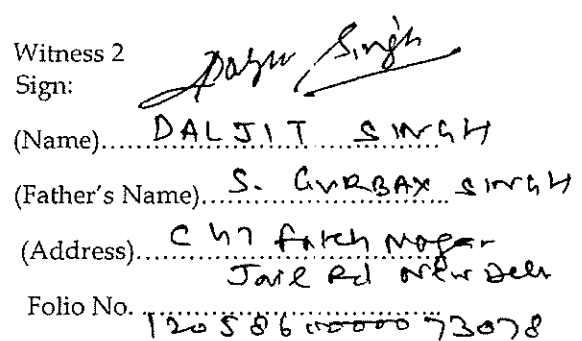 Witness 2
Sign: Daljit Singh
(Name) DALJIT SINGH
(Father's Name) S. GURBAX SINGH
(Address) C 47 Fateh Nagar
Jail Rd New Delhi
Folio No.